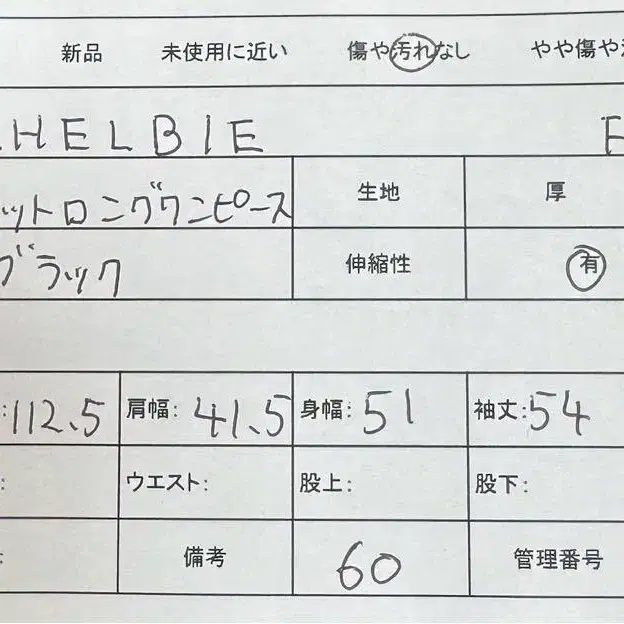 新品 未使用に近い 傷や汚れなし やや傷や
HELBIE
ットロングワンピース 生地 厚
ブラック 伸縮性 有
:112.5 肩幅: 41.5 身幅: 51 袖丈:54
: ウエスト: 股上: 股下:
: 備考 60 管理番号